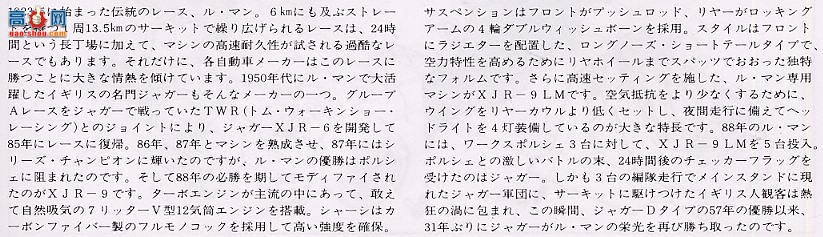 に始まった伝統のレース、ル・マン。6㎞にも及ぶストレー
周13.5㎞のサーキットで繰り広げられるレースは、24時
間という長丁場に加えて、マシンの高速耐久性が試される過酷なレ
ースでもあります。それだけに、各自動車メーカーはこのレースに
勝つことに大きな情熱を傾けています。1950年代にル・マンで大活
躍したイギリスの名門ジャガーもそんなメーカーの一つ。グループ
Aレースをジャガーで戦っていたTWR(トム・ウォーキンショー・
レーシング)とのジョイントにより、ジャガーXJR-6を開発して
85年にレースに復帰。86年、87年とマシンを熟成させ、87年にはシ
リーズ・チャンピオンに輝いたのですが、ル・マンの優勝はポルシ
ェに阻まれたのです。そして88年の必勝を期してモディファイされ
たのがXJR-9です。ターボエンジンが主流の中にあって、敢え
て自然吸気の7リッターV型12気筒エンジンを搭載。シャーシはカ
ーボンファイバー製のフルモノコックを採用して高い強度を確保。
サスペンションはフロントがプッシュロッド、リヤーがロッキング
アームの4輪ダブルウィッシュボーンを採用。スタイルはフロント
にラジエターを配置した、ロングノーズ・ショートテールタイプで、
空力特性を高めるためにリヤホイールまでスパッツでおおった独特
なフォルムです。さらに高速セッティングを施した、ル・マン専用
マシンがXJR-9LMです。空気抵抗をより少なくするために、
ウイングをリヤーカウルより低くセットし、夜間走行に備えてヘッ
ドライトを4灯装備しているのが大きな特長です。88年のル・マン
には、ワークスポルシェ3台に対して、XJR-9LMを5台投入。
ポルシェとの激しいバトルの末、24時間後のチェッカーフラッグを
受けたのはジャガー。しかも3台の編隊走行でメインスタンドに現
れたジャガー軍団に、サーキットに駆けつけたイギリス人観客は熱
狂の渦に包まれ、この瞬間、ジャガーDタイプの57年の優勝以来、
31年ぶりにジャガーがル・マンの栄光を再び勝ち取ったのです。